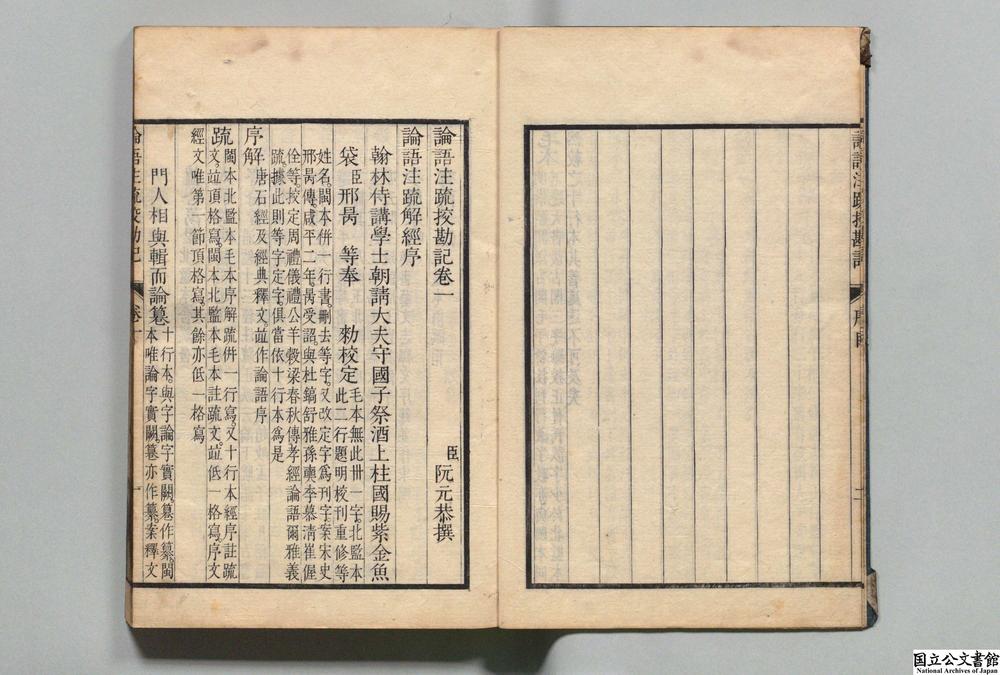 論語注疏挍勘記
序目
二
論語注疏挍勘記卷一
臣阮元恭撰
論語注疏解經序
翰林侍講學士朝請大夫守國子祭酒上柱國賜紫金魚
袋臣邢昺 等奉 勑校定
毛本無此卅一字。北監本
此二行題明校刊重修等
姓名。閩本併一行書。刪去等字。又改定字爲刋字。案宋史
邢昺傳。咸平二年。昺受詔。與杜鎬舒雅孫奭李慕淸崔偓
佺等。挍定周禮儀禮公羊穀梁春秋傳孝經論語爾雅義
疏。據此則等字定字。俱當依十行本爲是
序解
唐石經及經典釋文竝作論語序
疏
閩本北監本毛本序解疏併一行寫。又十行本經序註疏
文。竝頂格寫。閩本北監本毛本註疏文。竝低一格寫。序文
經文唯第一節頂格寫。其餘亦低一格寫
門人相與輯而論篹
十行本。與字論字實闕。篹作纂。閩
本唯論字實闕。篹亦作纂。案釋文
論語注疏挍勘記
卷一
一
国立公文書館
National Archives of Japan